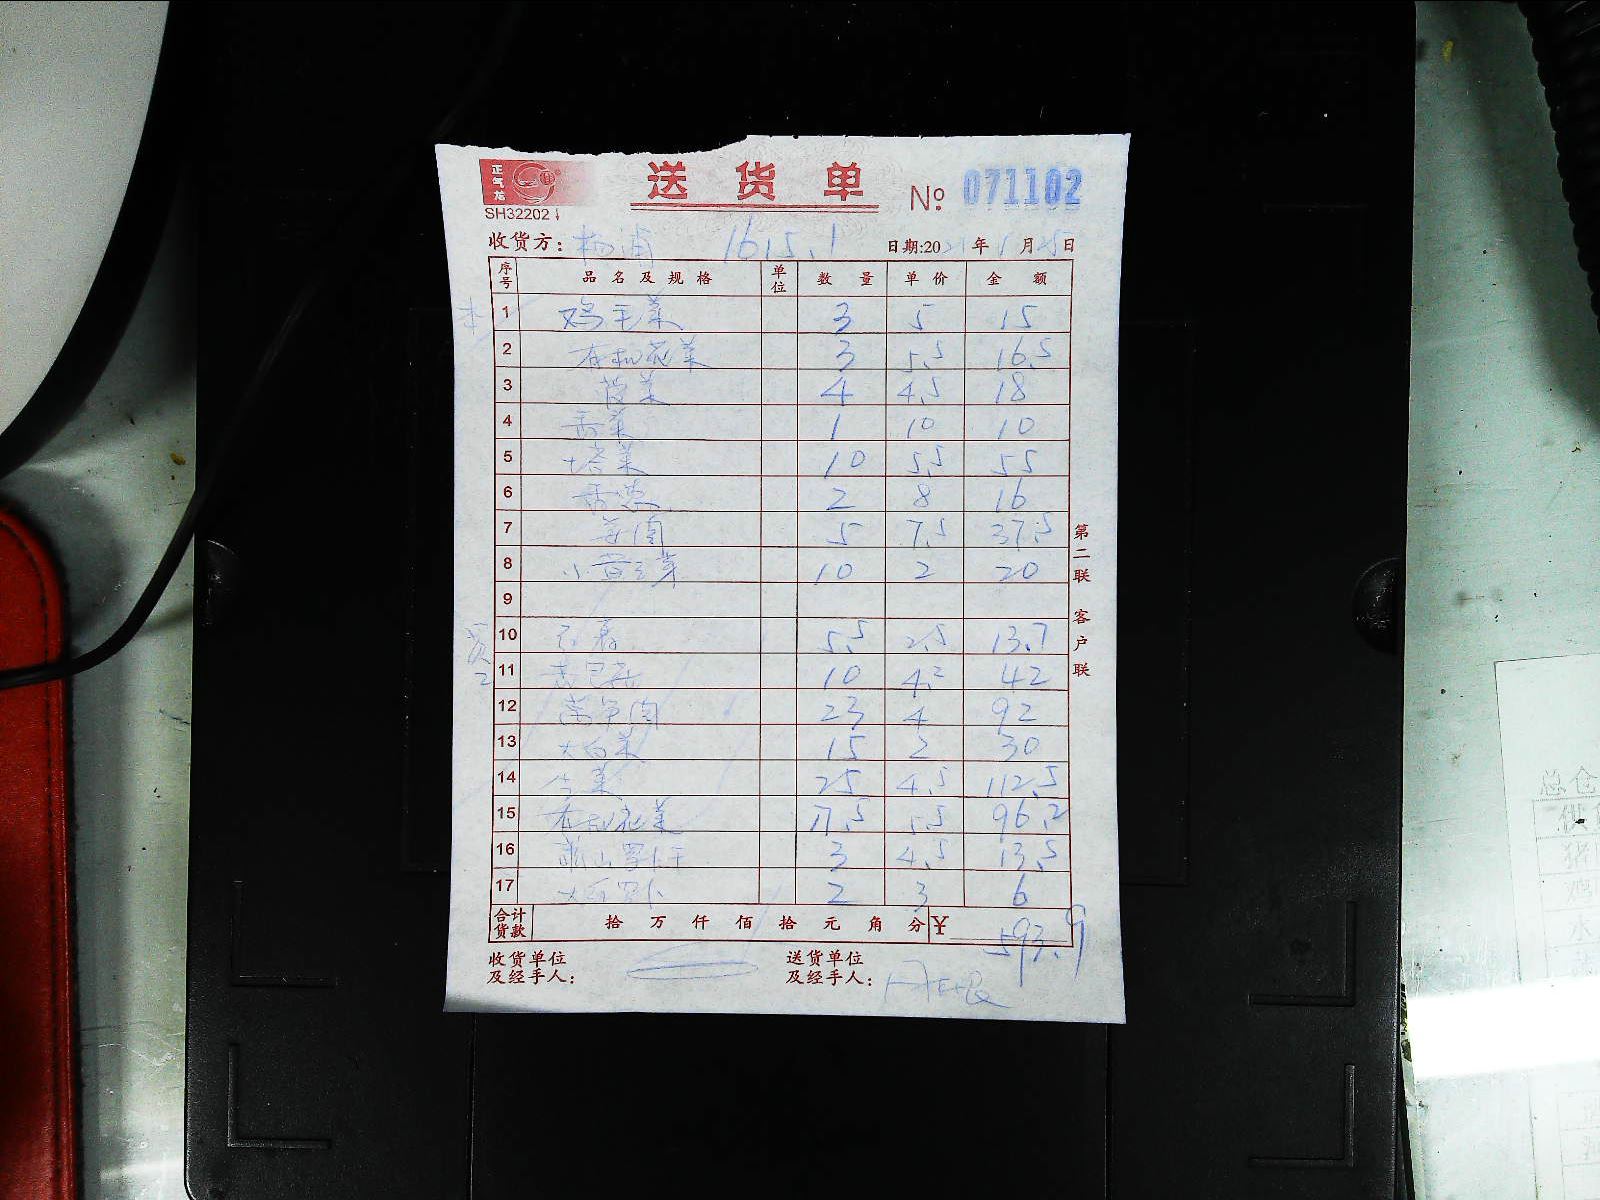 正气龙
送货单 № 071102
SH32202
收货方: 杨浦 1615.1 日期:2021年1月25日
序号 品名及规格 单位 数量 单价 金额
1 鸡毛菜 3 5 15
2 有机花菜 3 5.5 16.5
3 菠菜 4 4.5 18
4 香菜 1 10 10
5 塔菜 10 5.5 55
6 香葱 2 8 16
7 5 7.5 37.5
8 小黄豆芽 10 2 20
9
10 5.5 2.5 13.7
11 10 4.2 42
12 23 4 92
13 大白菜 15 2 30
14 生菜 25 4.5 112.5
15 有机花菜 17.5 5.5 96.2
16 萧山萝卜干 3 4.5 13.5
17 大白萝卜 2 3 6
合计货款 拾 万 仟 佰 拾 元 角 分 ¥ 593.9
收货单位及经手人: 送货单位及经手人:
第二联 客户联
总仓